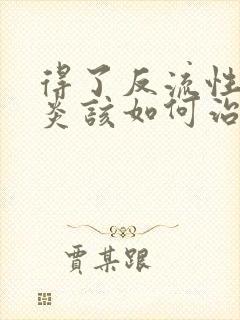 得了反流性
炎該如何治
賈某跟